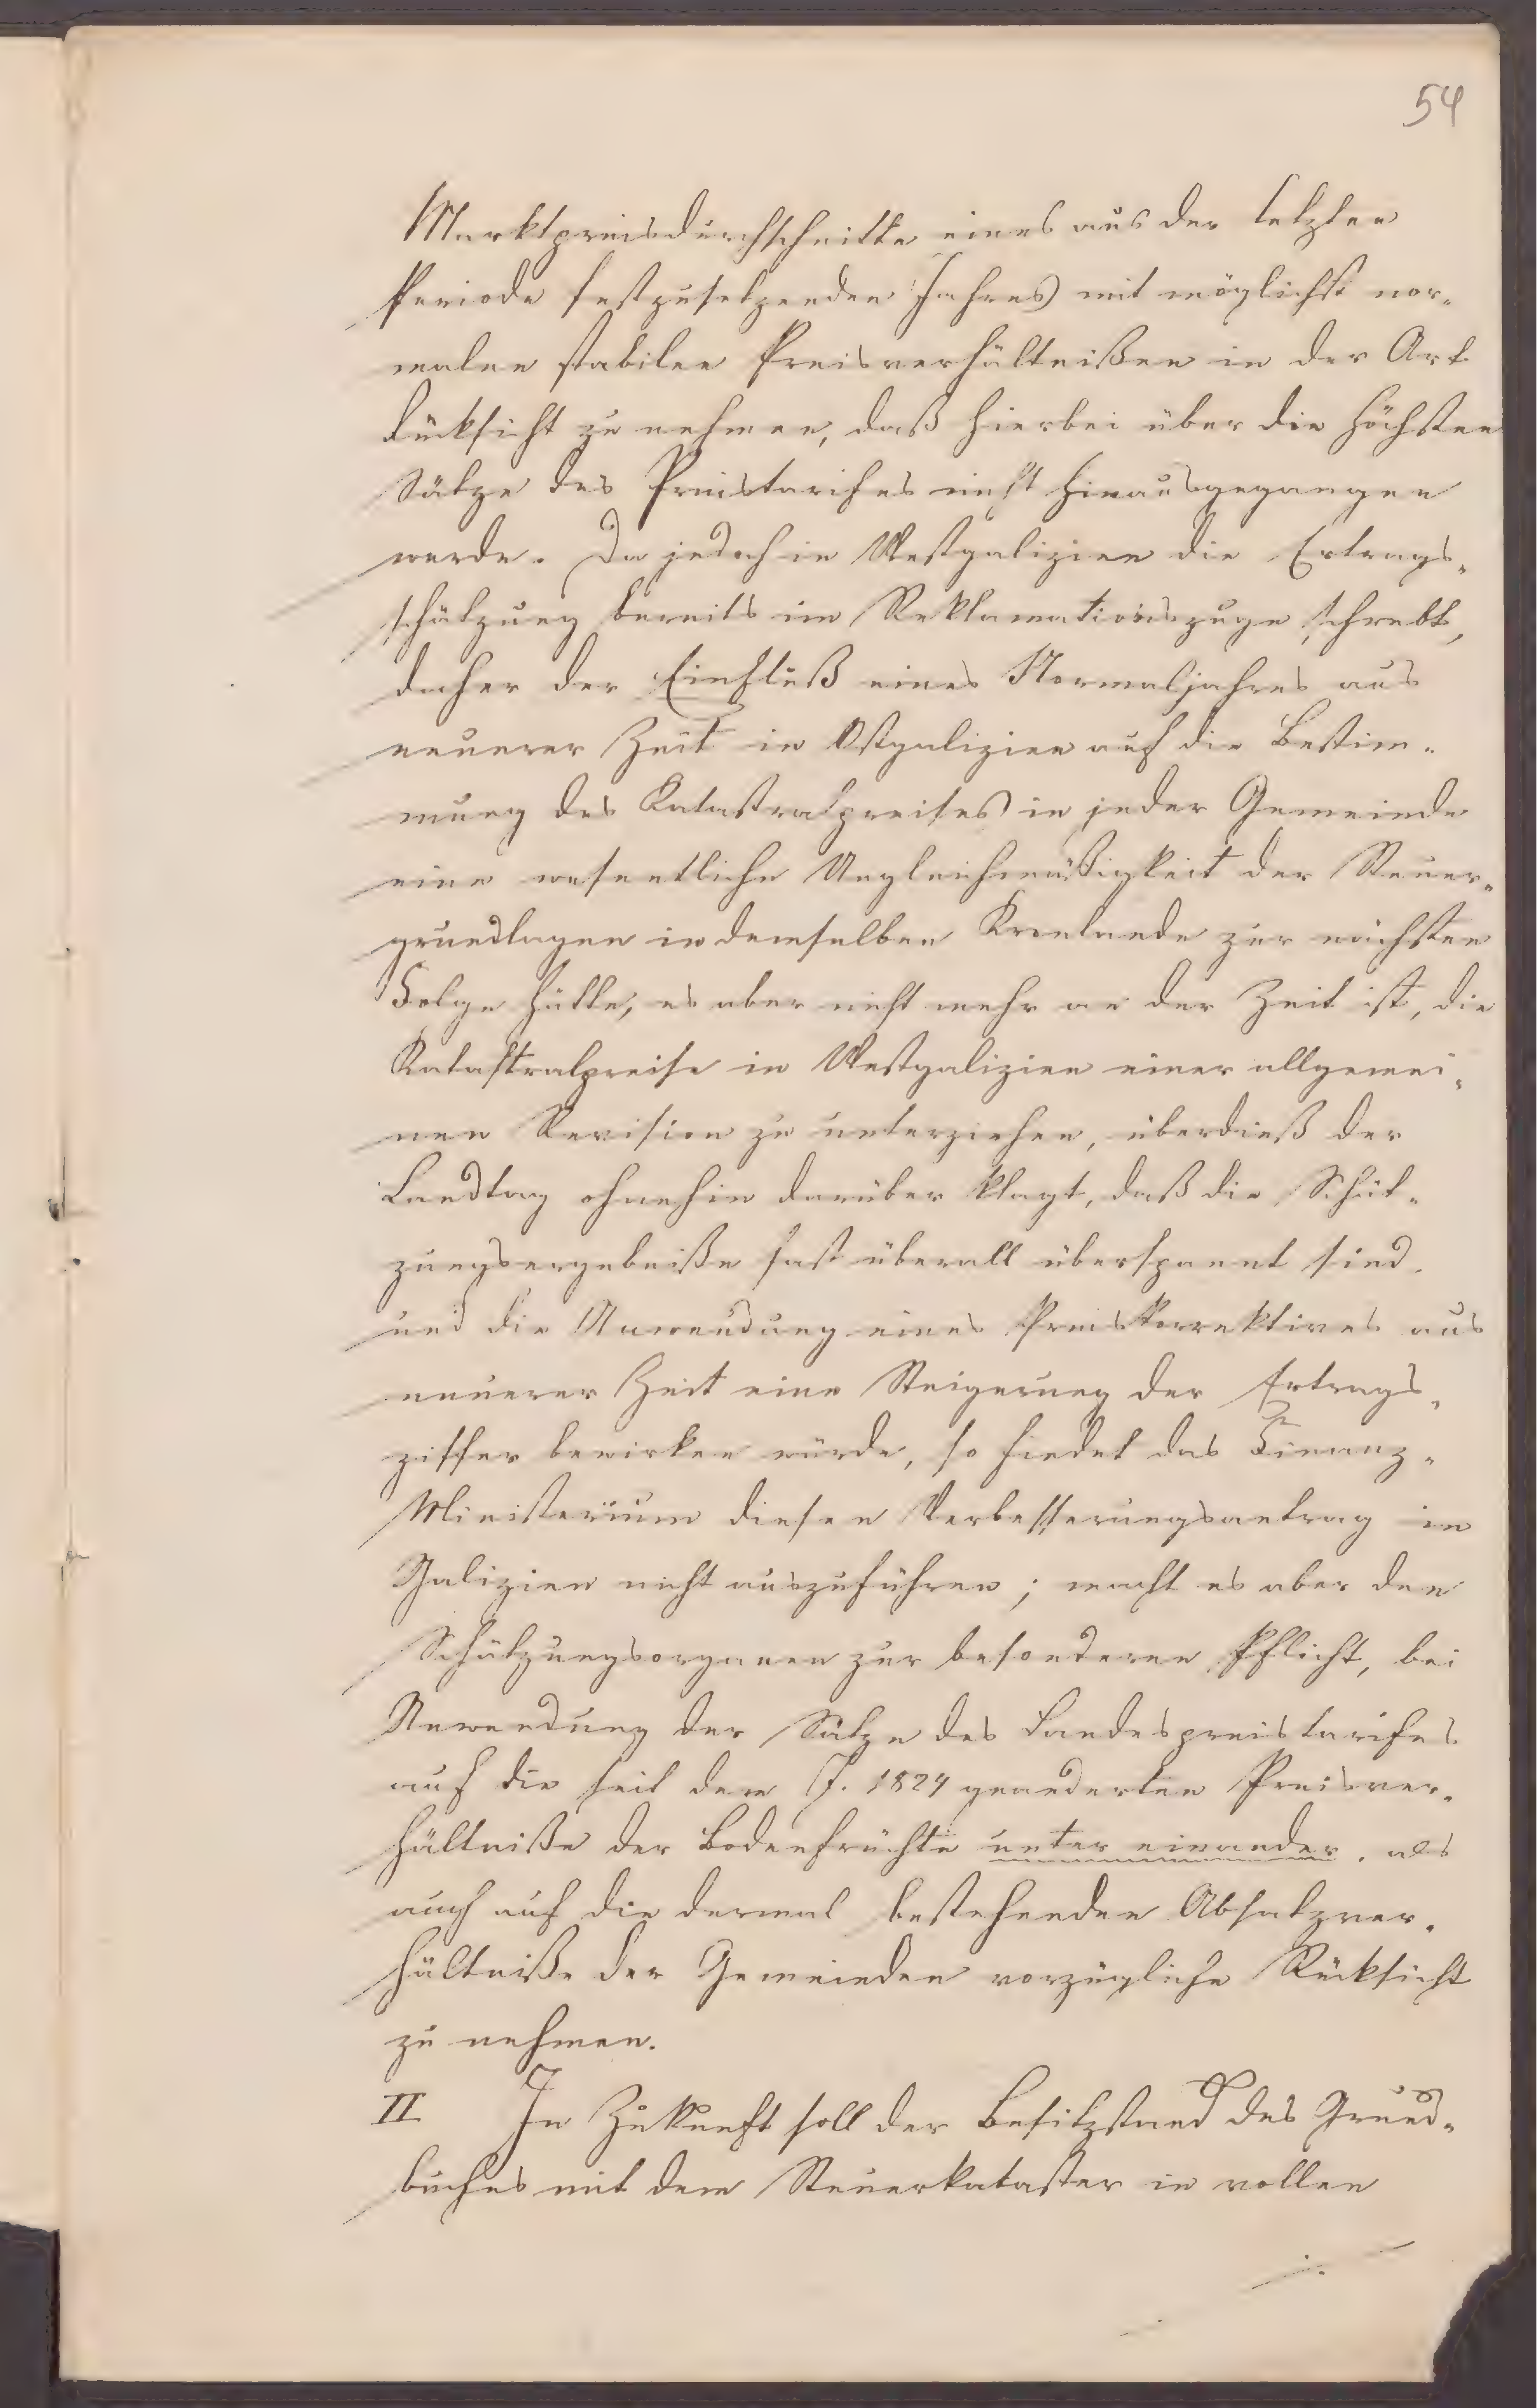 54
Marktpreisdurchschnitte eines aus der letzten
Periode festzusetzenden Jahres mit möglichst nor-
malen stabilen Preisverhältnißen in der Art
Rücksicht zu nehmen, daß hierbei über die höchsten
Sätze des Preistarifes nicht hinausgegangen
werde. Da jedoch in Westgalizien die Ertrags-
schätzung bereits im Reklamationszuge schwebt,
daher der Einfluß eines Normaljahres aus
neuerer Zeit in Ostgalizien auf die Bestim-
mung des Katastralpreises in jeder Gemeinde
eine wesentliche Ungleichmäßigkeit der Steuer-
grundlagen in demselben Kronlande zur nächsten
Folge hätte, es aber nicht mehr an der Zeit ist, die
Katastralpreise in Westgalizien einer allgemei-
nen Revision zu unterziehen, überdieß der
Landtag ohnehin darüber klagt, daß die Schät-
zungsergebniße fast überall überspannt sind,
und die Anwendung eines Preiskorrektives aus
neuerer Zeit eine Steigerung der Ertrags-
ziffer bewirken würde, so findet das Finanz-
Ministerium diesen Verbesserungsantrag in
Galizien nicht auszuführen; macht es aber den
Schätzungsorganen zur besonderen Pflicht, bei
Anwendung der Sätze des Landespreistarifes
auf die seit dem J. 1824 geänderten Preisver-
hältniße der Bodenfrüchte unter einander, als
auch auf die dermal bestehenden Absatzver-
hältniße der Gemeinden vorzügliche Rücksicht
zu nehmen.
II In Zukunft soll der Besitzstand des Grund-
buches mit dem Steuerkataster in vollen